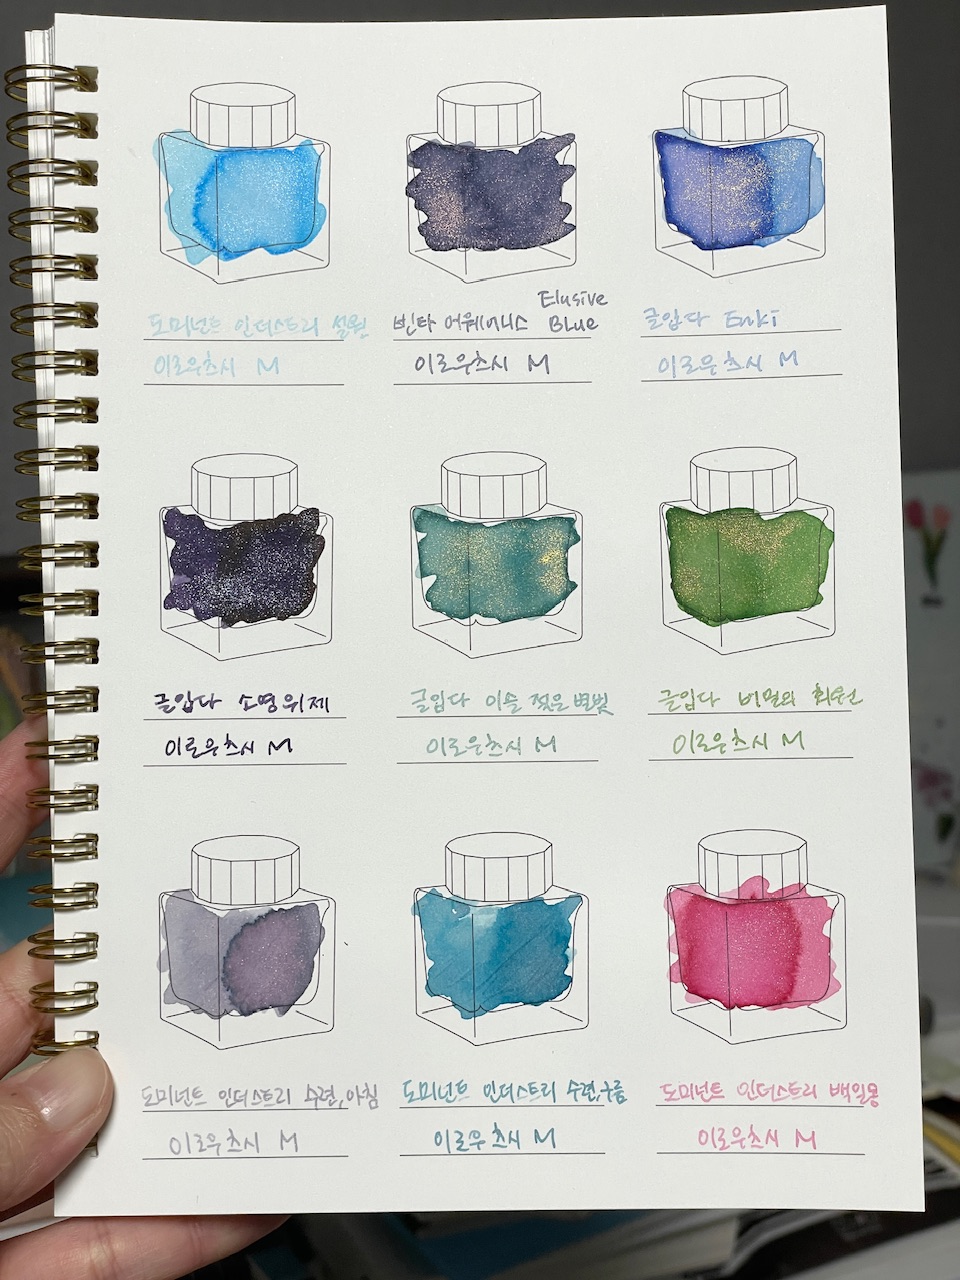 도미넌트 인더스트리 설원
이로우츠시 M
Elusive
빈타 어웨어니스 Blue
이로우츠시 M
글입다 Enki
이로우츠시 M
글입다 소명위제
이로우츠시 M
글입다 이슬 젖은 별빛
이로우츠시 M
글입다 비밀의 화원
이로우츠시 M
도미넌트 인더스트리 수련,아침
이로우츠시 M
도미넌트 인더스트리 수련,구름
이로우츠시 M
도미넌트 인더스트리 백일몽
이로우츠시 M